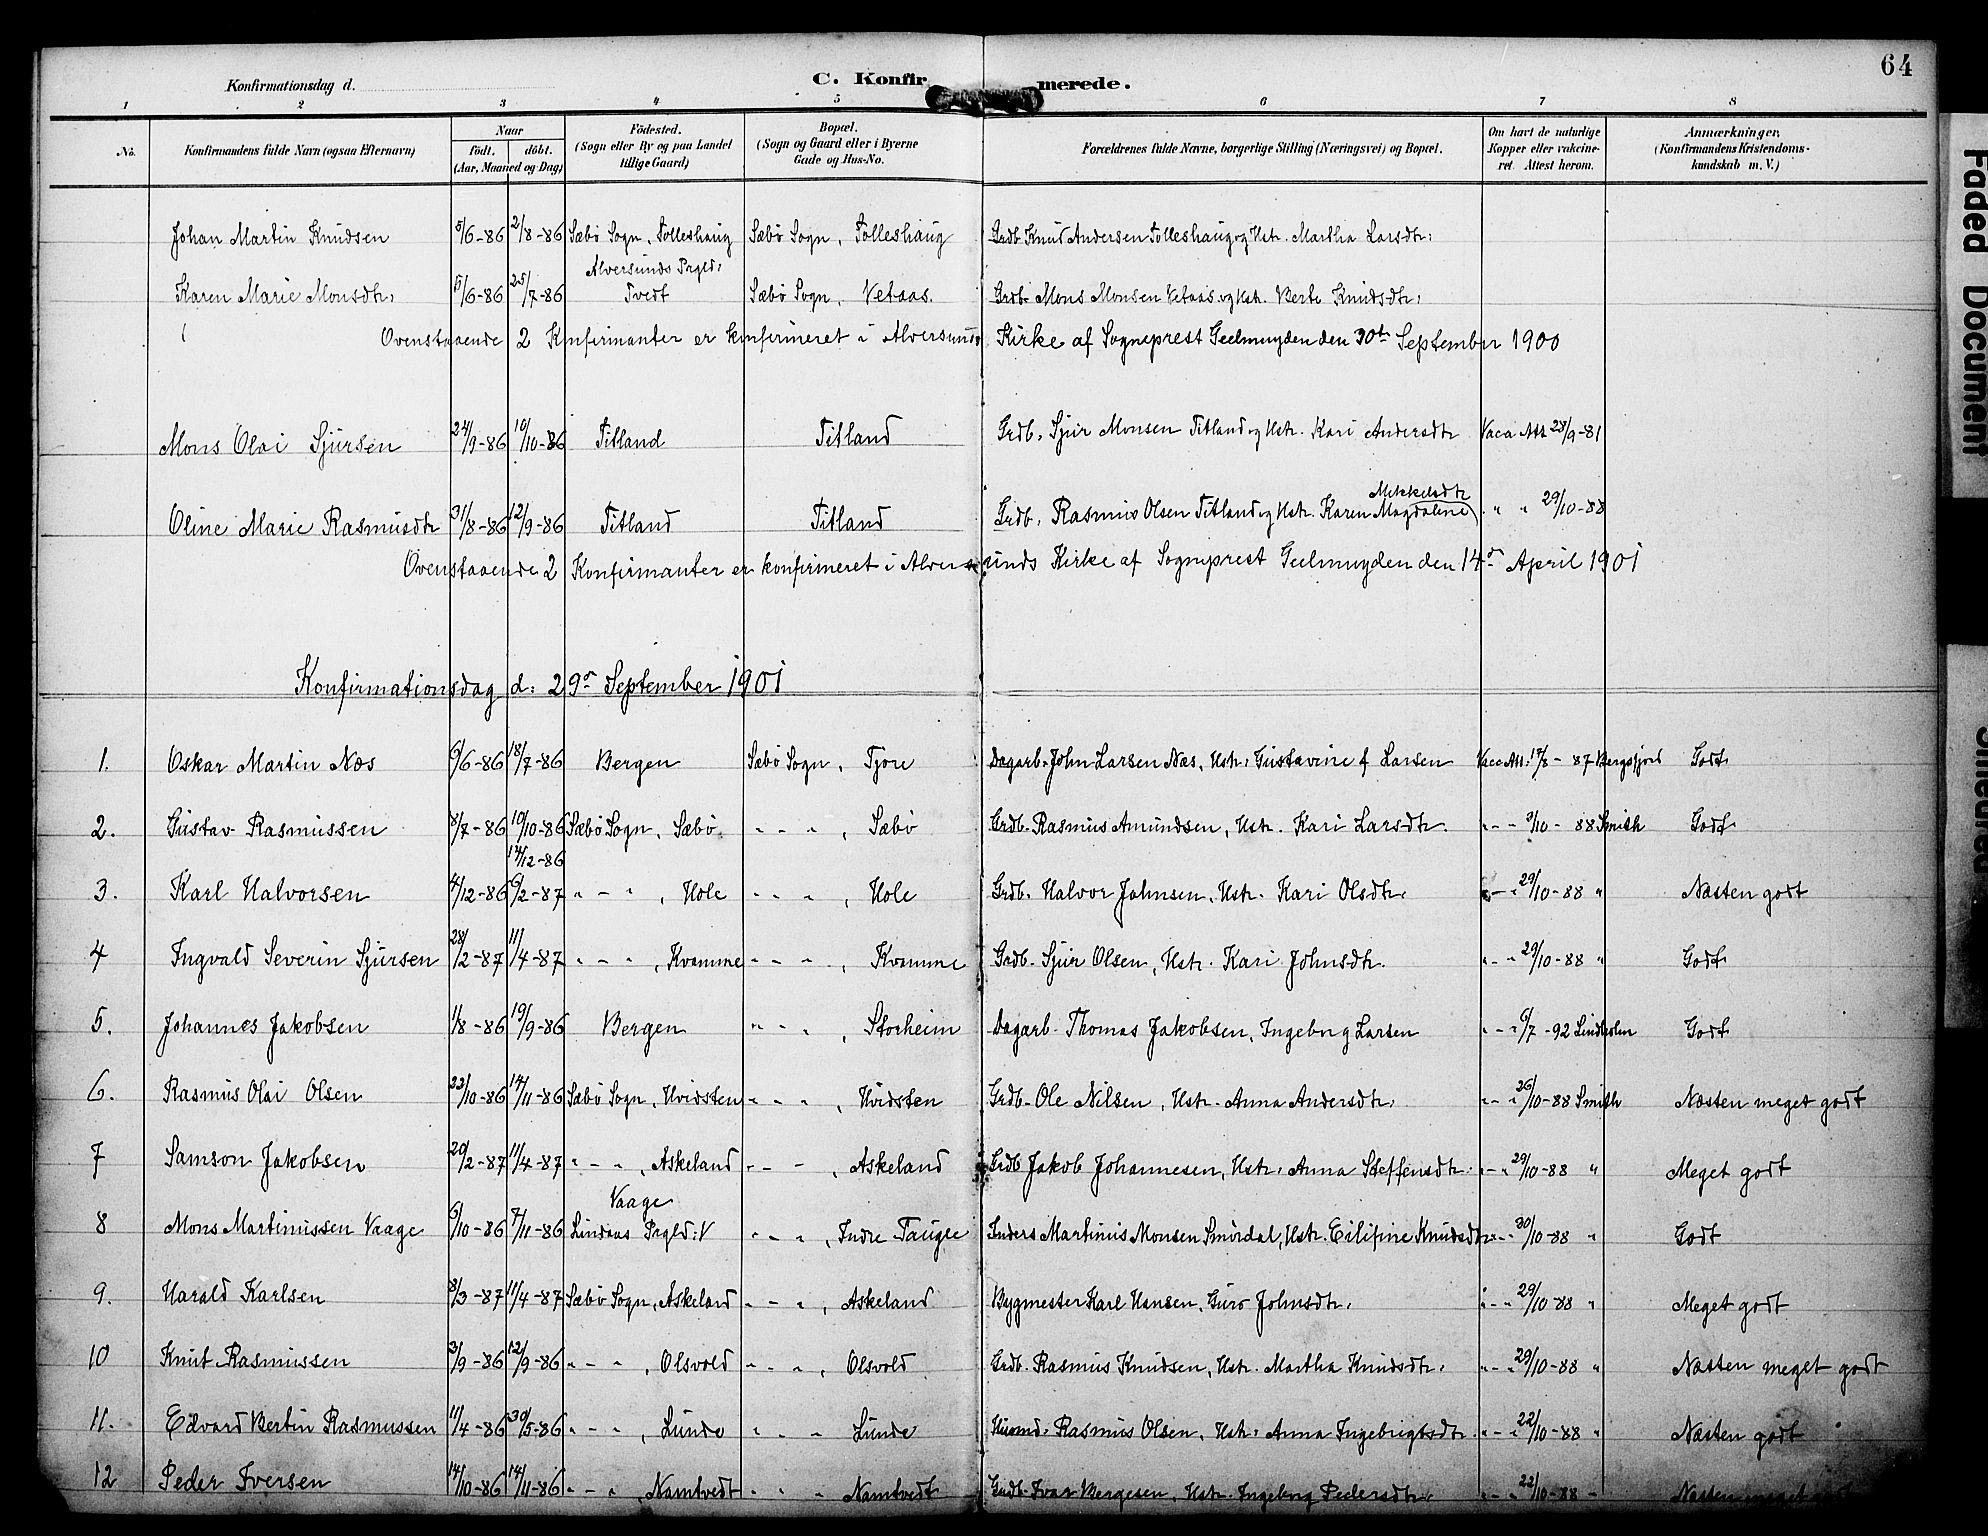 64
Konfirmationsdag d.
C. Konfirmerede.
1 2 3 4 5 6 7 8
No. Konfirmandens fulde Navn (ogsaa Efternavn) Naar født. døbt. (Aar, Maaned og Dag) Fødested. (Sogn eller By og paa Landet tillige Gaard) Bopæl. (Sogn og Gaard eller i Byerne Gade og Hus-No. Forældrenes fulde Navne, borgerlige Stilling (Næringsvei) og Bopæl. Om havt de naturlige Kopper eller vakcineret. Attest herom. Anmærkninger, (Konfirmandens Kristendomskundskab m. V.)
Johan Martin Knudsen 5/6-86 2/8-86 Sæbø Sogn, Tolleshaug Sæbø Sogn, Tolleshaug Grdb. Knud Andersen Tolleshaug og Hstr. Martha Larsdtr.
Alversunds Prgld.
Karen Marie Monsdtr. 5/6-86 25/7-86 Tvedt Sæbø Sogn, Vetaas. Grdb. Mons Monsen Vetaas og Hstr. Berte Knudsdtr.
Ovenstaaende 2 Konfirmanter er konfirmeret i Alversunds Kirke af Sogneprest Geelmuyden den 30te September 1900
Mons Olai Sjursen 24/9-86 10/10-86 Titland Titland Grdb. Sjur Monsen Titland og Hstr. Kari Andersdtr Vacc Att 28/9-81
Mikkelsdtr
Oline Marie Rasmusdtr 31/8-86 12/9-86 Titland Titland Grdb. Rasmus Olsen Titland og Hstr. Karen Magdalene " " 29/10-88
Ovenstaaende 2 Konfirmanter er konfirmeret i Alversunds Kirke af Sogneprest Geelmuyden den 14de April 1901
Konfirmationsdag d: 29de September 1901
1. Oskar Martin Næs 6/6-86 18/7-86 Bergen Sæbø Sogn, Fjore Dagarb. John Larsen Næs, Hstr. Gustavine f Larsen Vacc Att. 17/8-87 Bergsfjord Godt
2. Gustav Rasmussen 8/7-86 10/10-86 Sæbø Sogn, Sæbø. " - ", Sæbø Grdb. Rasmus Amundsen, Hstr. Kari Larsdtr. " - 3/10-88 Smith Godt
12/12-86
3. Karl Halvorsen 4/12-86 6/2-87 " - ", Hole " - ", Hole Grdb. Halvor Johnsen, Hstr. Kari Olsdtr. " - " 29/10-88 " Næsten godt
4 Ingvald Severin Sjursen 28/2-87 11/4-87 " - ", Kvamme " - ", Kvamme Grdb. Sjur Olsen, Hstr. Kari Johnsdtr. " - " 29/10-88 " Godt
5. Johannes Jakobsen 1/8-86 19/9-86 Bergen " - ", Storheim Dagarb. Thomas Jakobsen, Ingeborg Larsen " - " 6/7-92 Lindholm Godt
6. Rasmus Olai Olsen 22/10-86 14/11-86 Sæbø Sogn, Hvidsten " - ", Hvidsten Grdb. Ole Nilsen, Hstr. Anna Andersdtr. " - " 26/10-88 Smith Næsten meget godt
7 Samson Jakobsen 20/2-87 11/4-87 " - ", Askeland " - ", Askeland Grdb Jakob Johannesen, Hstr. Anna Steffensdtr. " - " 29/10-88 " Meget godt
Vaage
8 Mons Martinussen Vaage 6/10-86 7/11-86 Lindaas Prgld: V " - ", Indre Taugle Inders Martinus Monsen Smørdal, Hstr. Eilifine Knudsdtr " - 30/10-88 " Godt
9. Harald Karlsen 8/3-87 11/4-87 Sæbø Sogn, Askeland " - ", Askeland Bygmester Karl Hansen, Guro Johnsdtr. " - " 29/10-88 " Meget godt
10 Knut Rasmussen 3/9-86 12/9-86 " - ", Olsvold " - ", Olsvold Grdb. Rasmus Knudsen, Hstr. Martha Knudsdtr. " - " 29/10-88 " Næsten meget godt
11. Edvard Bertin Rasmussen 11/4-86 30/5-86 " - ", Lunde " - " Lunde Husmd. Rasmus Olsen, Hstr. Anna Ingebrigtsdtr. " - " 22/10-88 " Næsten godt
12 Peder Iversen 14/10-86 14/11-86 " - ", Namtvedt " - " Namtvedt Grdb. Ivar Bergesen, Hstr. Ingeborg Pedersdtr. " - " 22/10-88 " Næsten meget
Faded Document